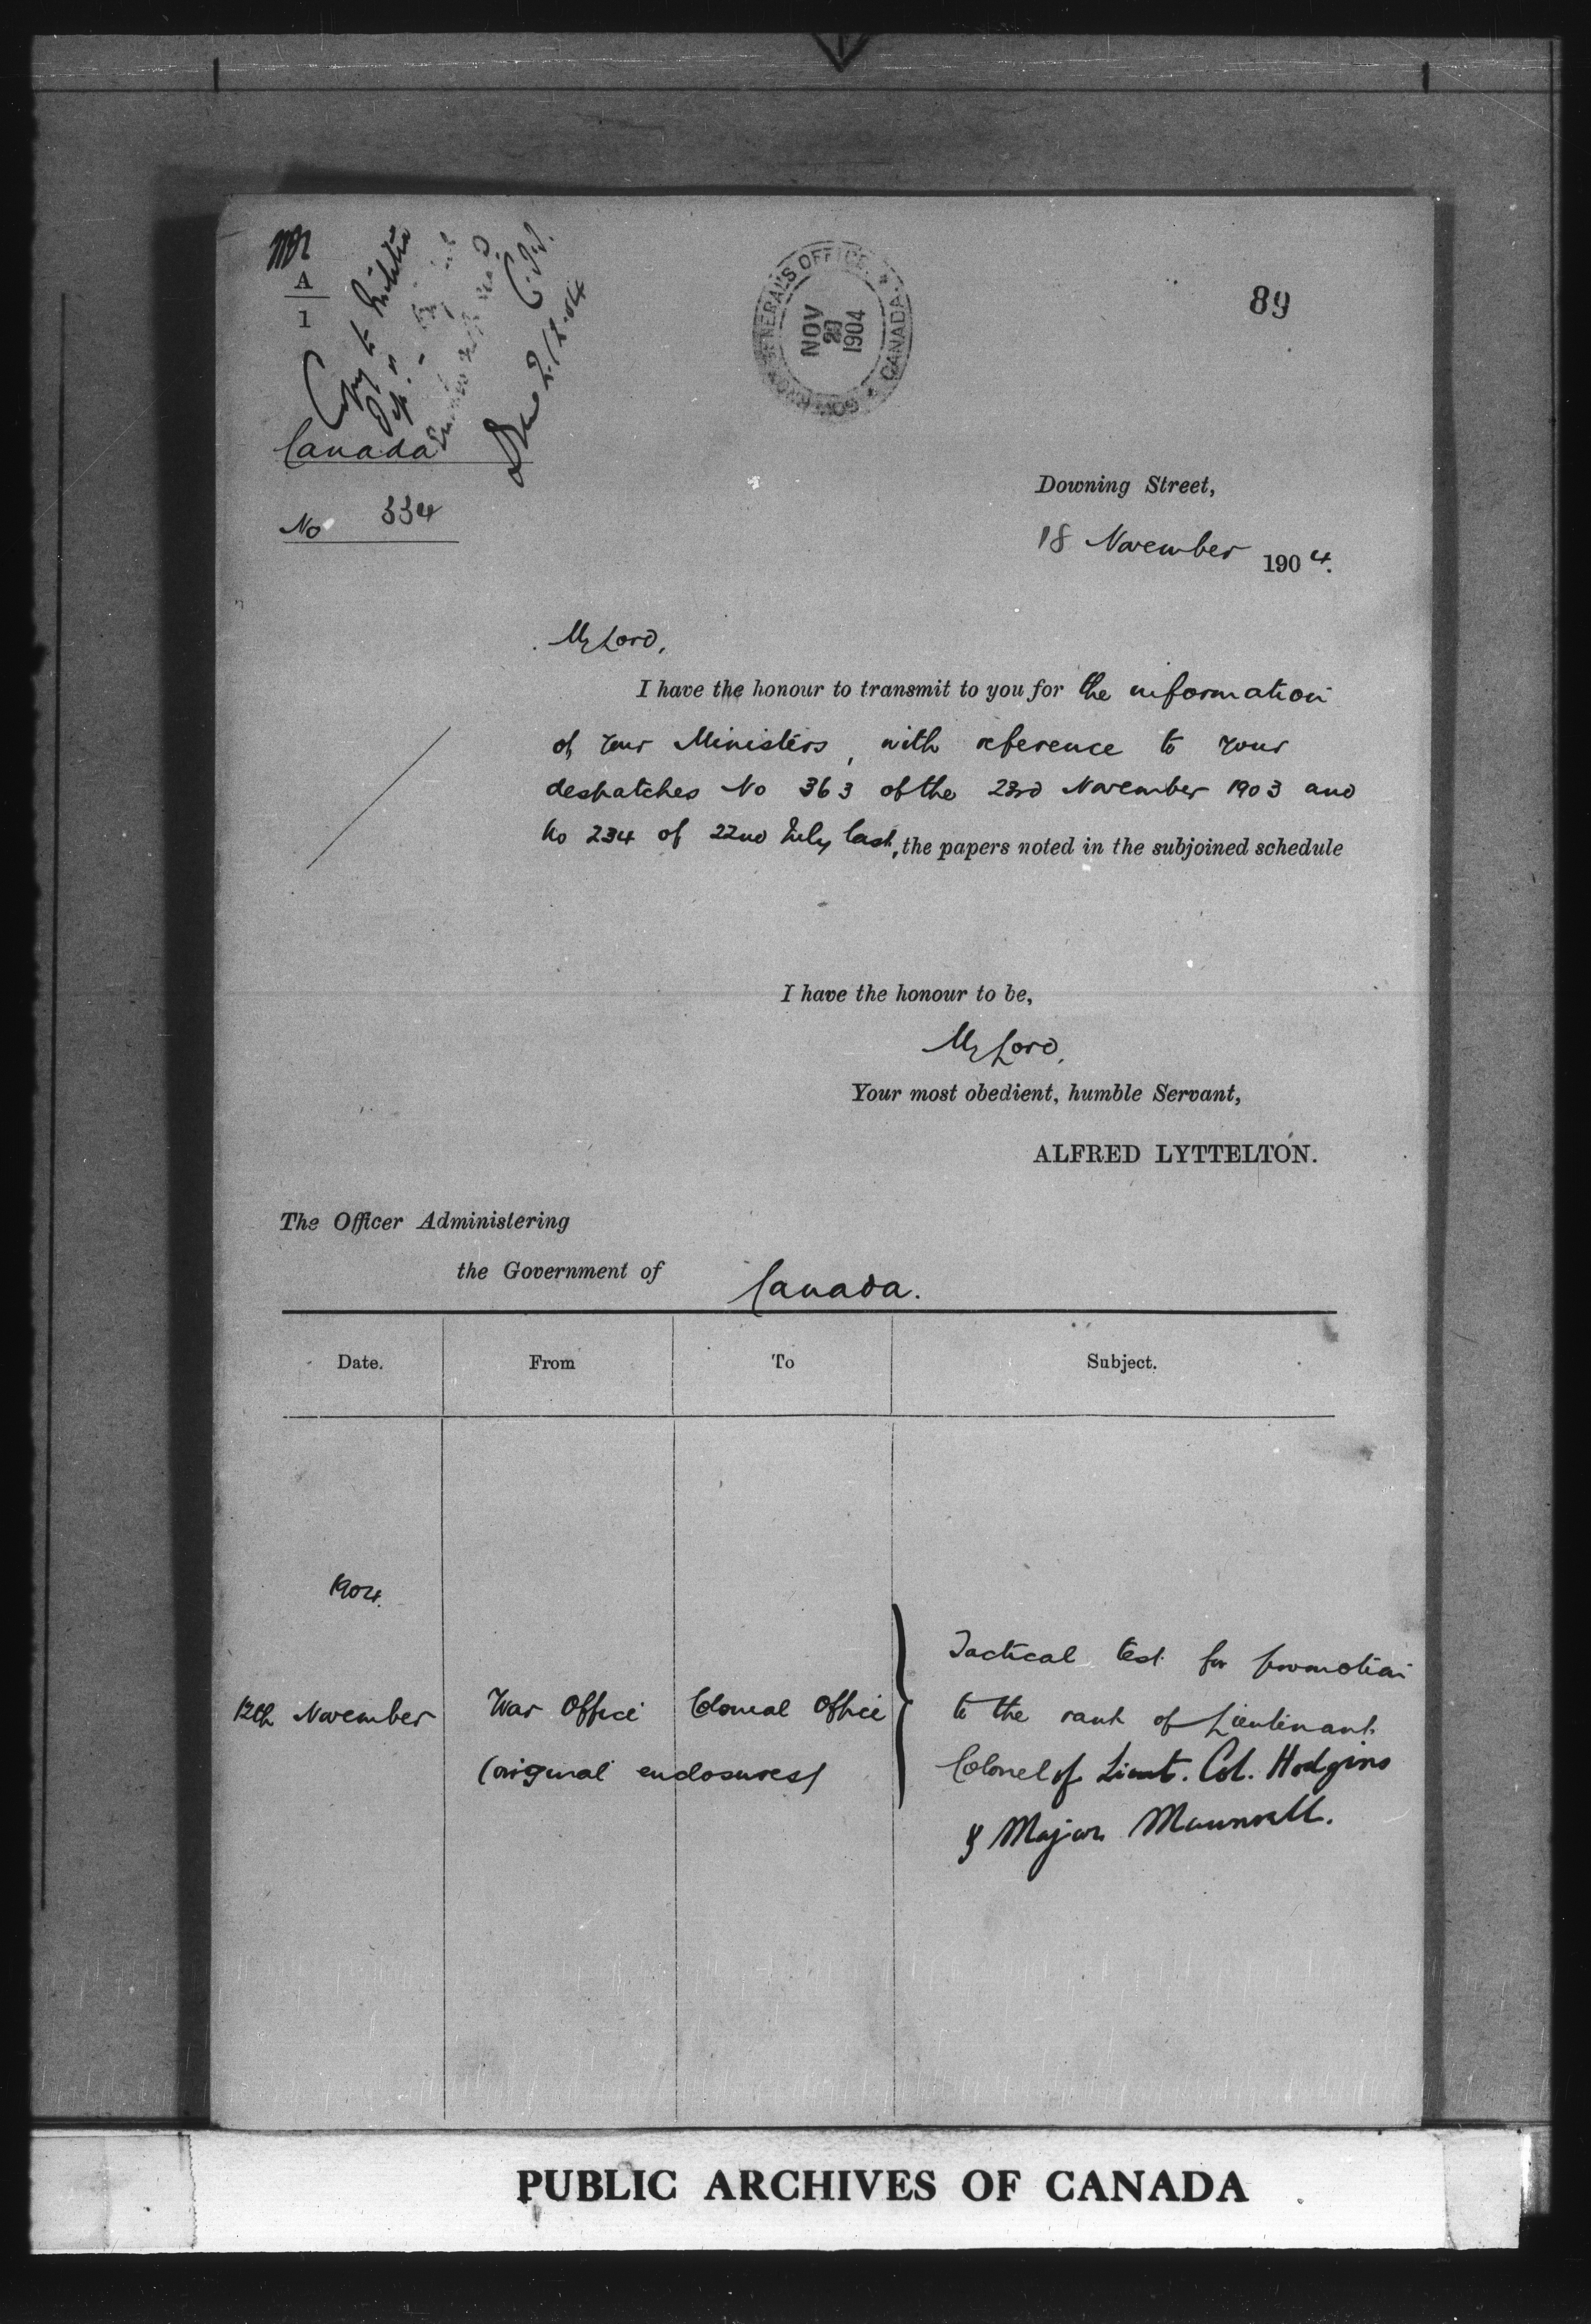 A
1
Copy to Militia
GOVERNOR GENERAL'S OFFICE
CANADA
NOV
1904
89
Canada
No 334
Downing Street,
18 November 1904.
My Lord,
I have the honour to transmit to you for the information
of your Ministers, with reference to your
despatches No 363 of the 23rd November 1903 and
No 234 of 22nd July last, the papers noted in the subjoined schedule
I have the honour to be,
My Lord,
Your most obedient, humble Servant,
ALFRED LYTTELTON.
The Officer Administering
the Government of Canada.
Date. From To Subject.
1904.
12th November War Office Colonial Office
(original enclosures)
Tactical test for promotion
to the rank of Lieutenant
Colonel of Lieut. Col. Hodgins
& Major Maunsell.
PUBLIC ARCHIVES OF CANADA